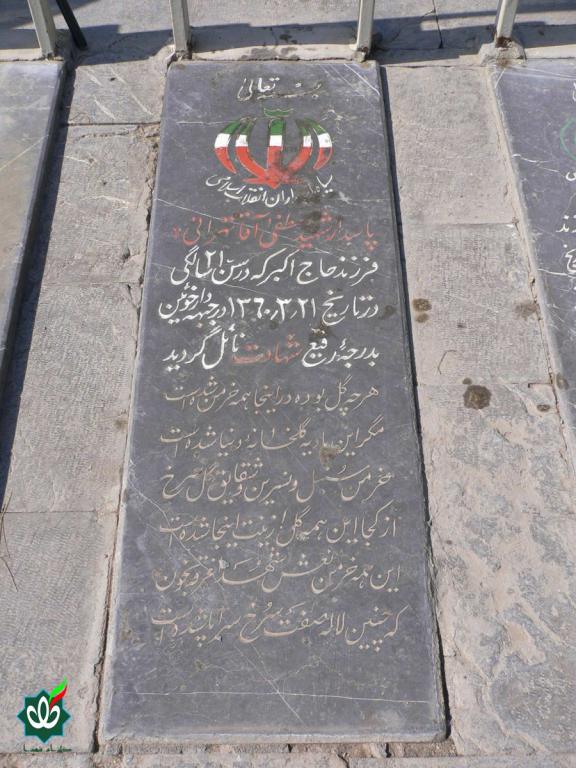 بسمه تعالی
پاسداران انقلاب اسلامی
پاسدار شهید مصطفی آقا تهرانی
فرزند حاج اکبر که در سن ۲۱ سالگی
در تاریخ ۱۳۶۰٫۳٫۲۱ در جبهه دارخوئین
بدرجهٔ رفیع شهادت نائل گردید
هر چه گل بوده در اینجا همه خرمن شده است
مگر این بادیه گلخانه دنیا شده است
خرمن سنبل و نسرین و شقایق گل سرخ
از کجا این همه گل زینت اینجا شده است
این همه خرمن نعش شهدا غرقه بخون
که چنین لاله صفت سرخ سراپا شده است